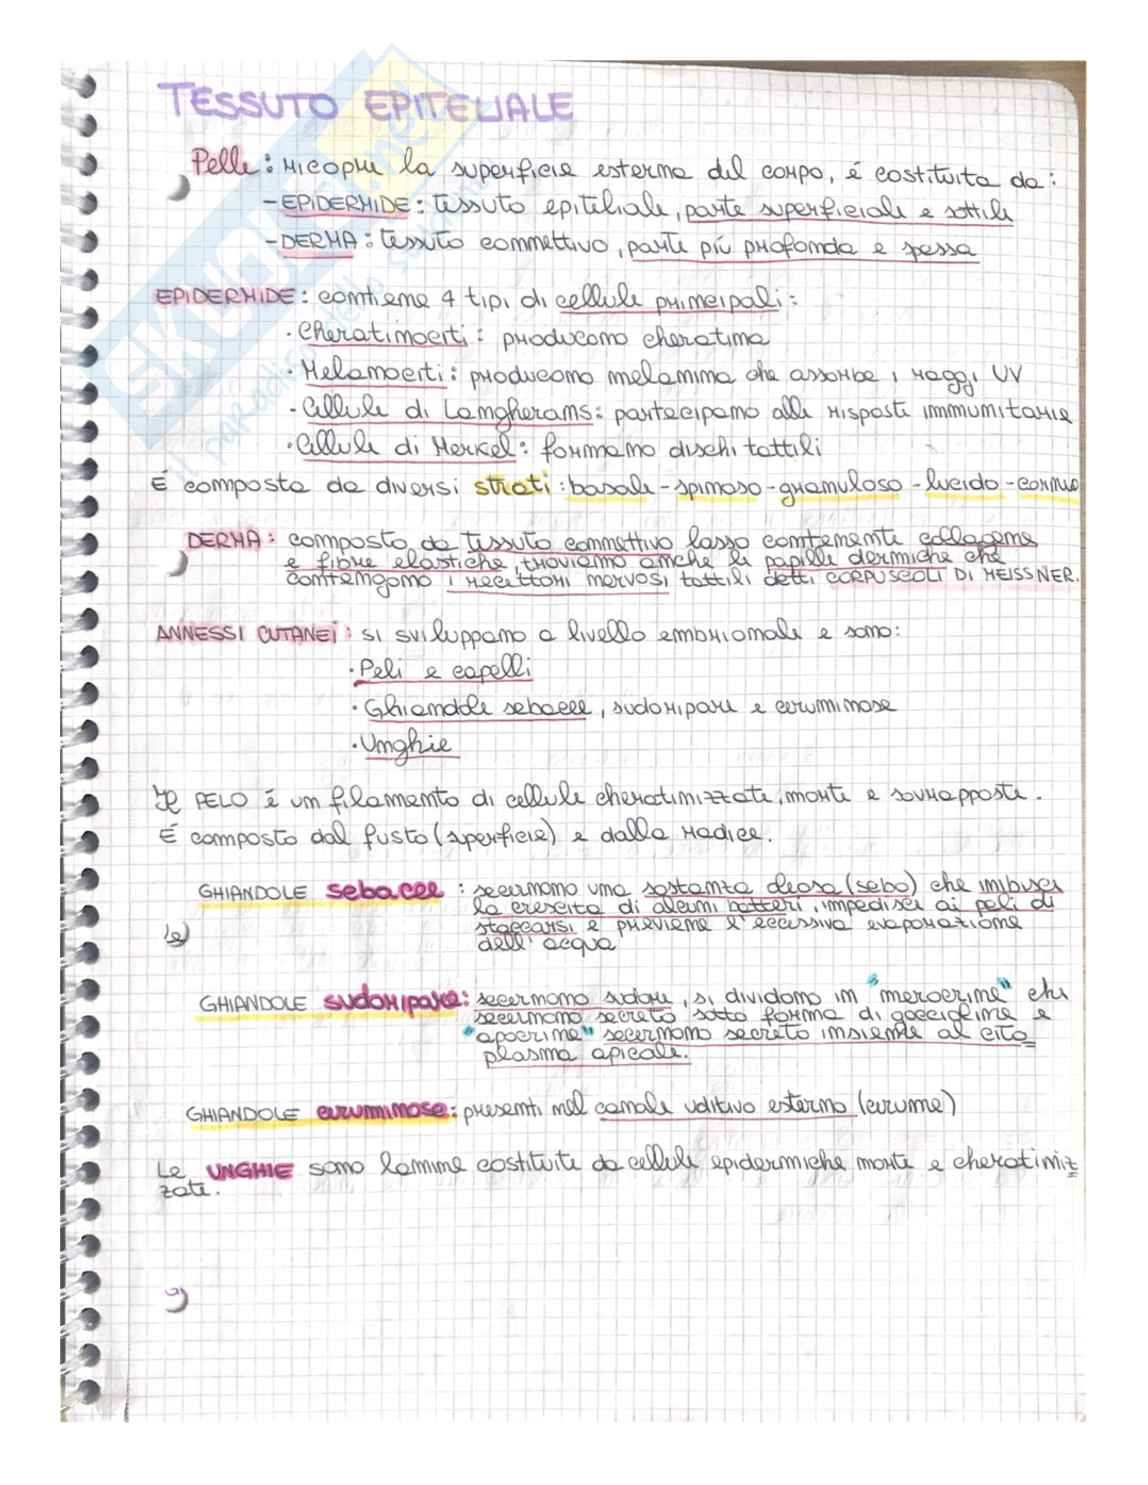 TESSUTO EPITELIALE
Pelle: ricopre la superficie esterna del corpo, é costituita da:
- EPIDERMIDE: tessuto epiteliale, parte superficiale e sottile
- DERMA: tessuto connettivo, parte più profonda e spessa
EPIDERMIDE: contiene 4 tipi di cellule principali:
· Cheratinociti: producono cheratina
· Melanociti: producono melanina che assorbe i raggi UV
· Cellule di Langherans: partecipano alle risposte immunitarie
· Cellule di Merkel: formano dischi tattili
É composta da diversi strati: basale - spinoso - granuloso - lucido - corneo
DERMA: composto da tessuto connettivo lasso contenente collagene
e fibre elastiche, troviamo anche le papille dermiche che
contengono i recettori nervosi tattili detti CORPUSCOLI DI MEISSNER.
ANNESSI CUTANEI: si sviluppano a livello embrionale e sono:
· Peli e capelli
· Ghiandole sebacee, sudoripare e ceruminose
· Unghie
Il PELO é un filamento di cellule cheratinizzate, morte e sovrapposte.
É composto dal fusto (superficie) e dalla radice.
GHIANDOLE sebacee: secernono una sostanza oleosa (sebo) che inibisce
la crescita di alcuni batteri, impedisce ai peli di
staccarsi e previene l'eccessiva evaporazione
dell'acqua
GHIANDOLE sudoripare: secernono sudore, si dividono in "merocrine" che
secernono secreto sotto forma di goccioline e
"apocrine" secernono secreto insieme al cito=
plasma apicale.
GHIANDOLE ceruminose: presenti nel canale uditivo esterno (cerume)
Le UNGHIE sono lamine costituite da cellule epidermiche morte e cheratiniz=
zate.
SKUOLA.net
il paradiso dello